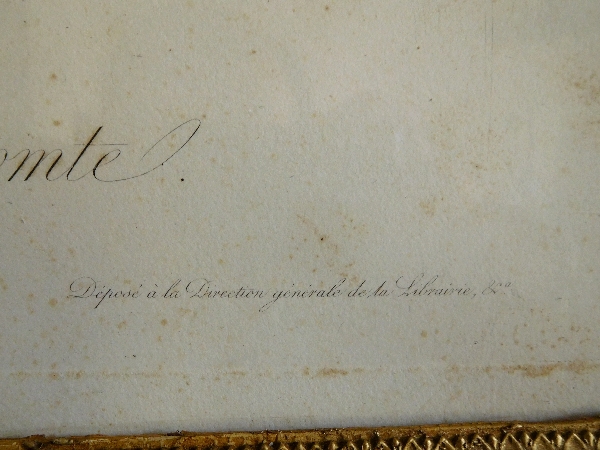 omte.
Déposé à la Direction générale de la Librairie, &c.a